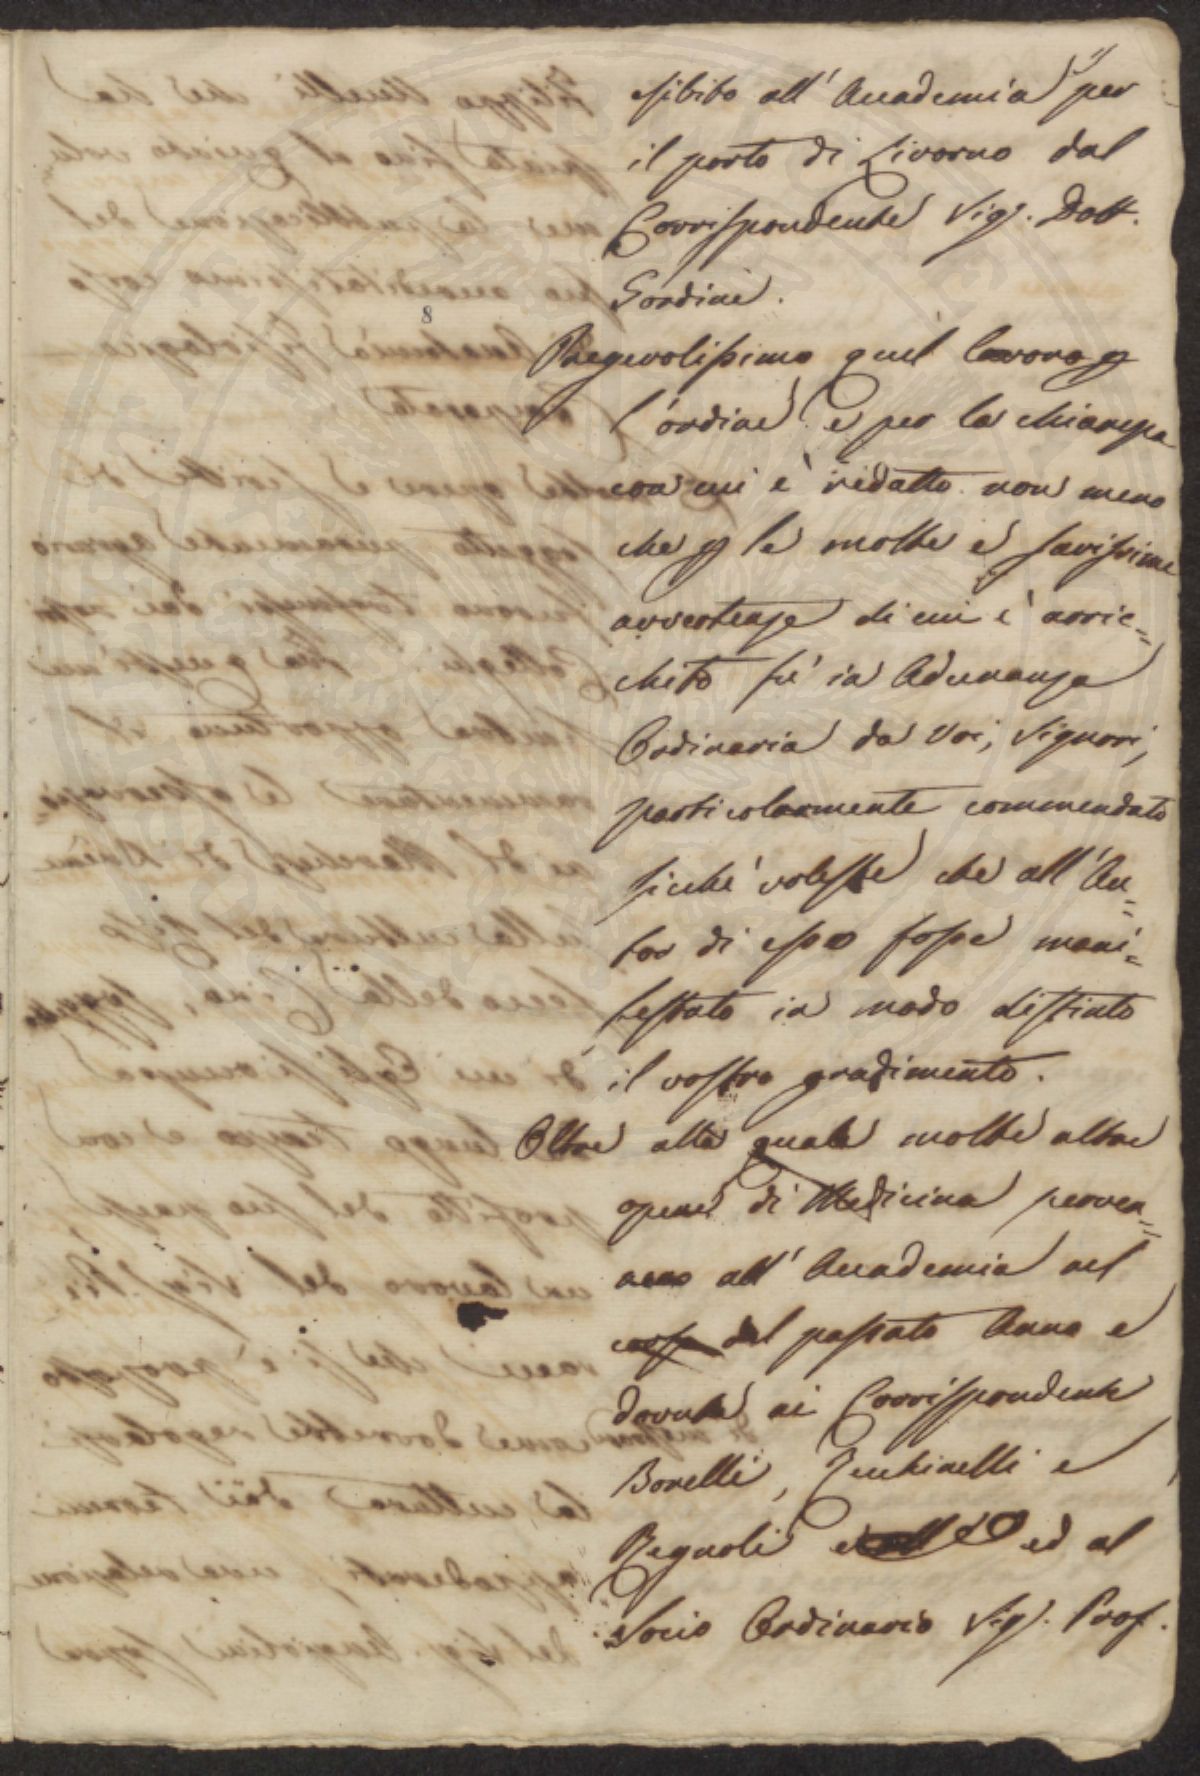 esibito all' Accademia per
il porto di Livorno dal
Corrispondente Sig.r Dott.
Gordini.
8
Pregevolissimo quel lavoro p
l'ordine e per la chiarezza
con cui è redatto non meno
che p le molte e savissime
avvertenze di cui è arric=
chito fù in Adunanza
Ordinaria da Voi, Signori,
particolarmente commendato
sicchè voleste che all' Au=
tor di esso fosse mani=
festato in modo distinto
il vostro gradimento.
Oltre alla quale molte altre
opere di Medicina perven=
nero all' Accademia nel
corso del passato Anno e
dovute ai Corrispondenti
Borelli, Zecchinelli e
Regnoli ed al
Socio Ordinario Sig. Prof.